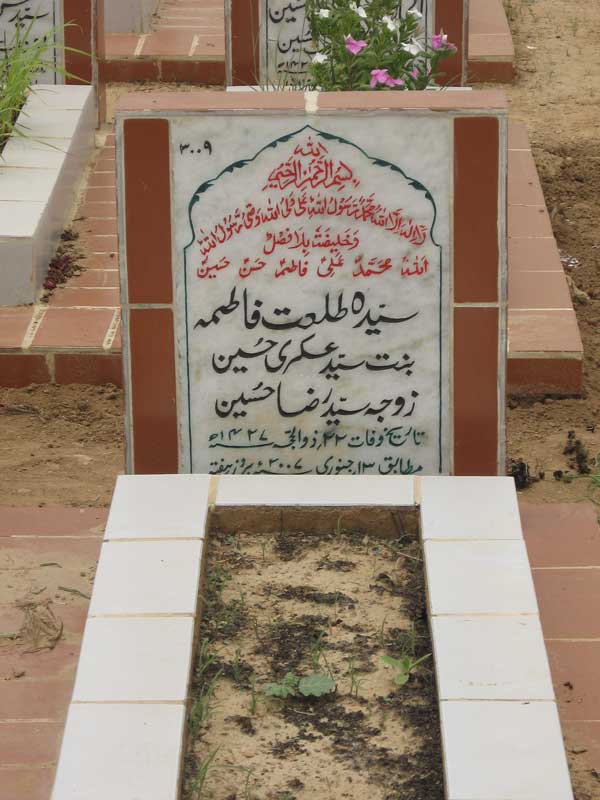 ۳۰۰۹
الله
بسم الله الرحمن الرحیم
لا اله الا الله محمد رسول الله علی ولی الله وصی رسول الله
و خلیفته بلا فصل
الله محمد علی فاطمه حسن حسین
سیده طلعت فاطمه
بنت سید عسکری حسین
زوجہ سید رضا حسین
تاریخ وفات ۲۲، ذوالحجہ ۱۴۲۷ھ
مطابق ۱۳، جنوری ۲۰۰۷ء بروز ہفتہ